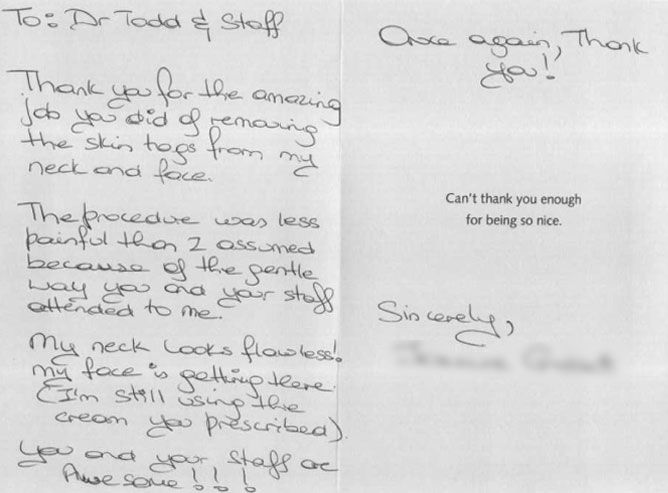 To: Dr Todd & Staff
Thank you for the amazing
job you did of removing
the skin tags from my
neck and face.
The procedure was less
painful than I assumed
because of the gentle
way you and your staff
attended to me.
My neck looks flawless!
my face is getting there.
(I'm still using the
cream you prescribed).
You and your staff are
Awesome!!!
Once again, Thank
you!
Can't thank you enough
for being so nice.
Sincerely,